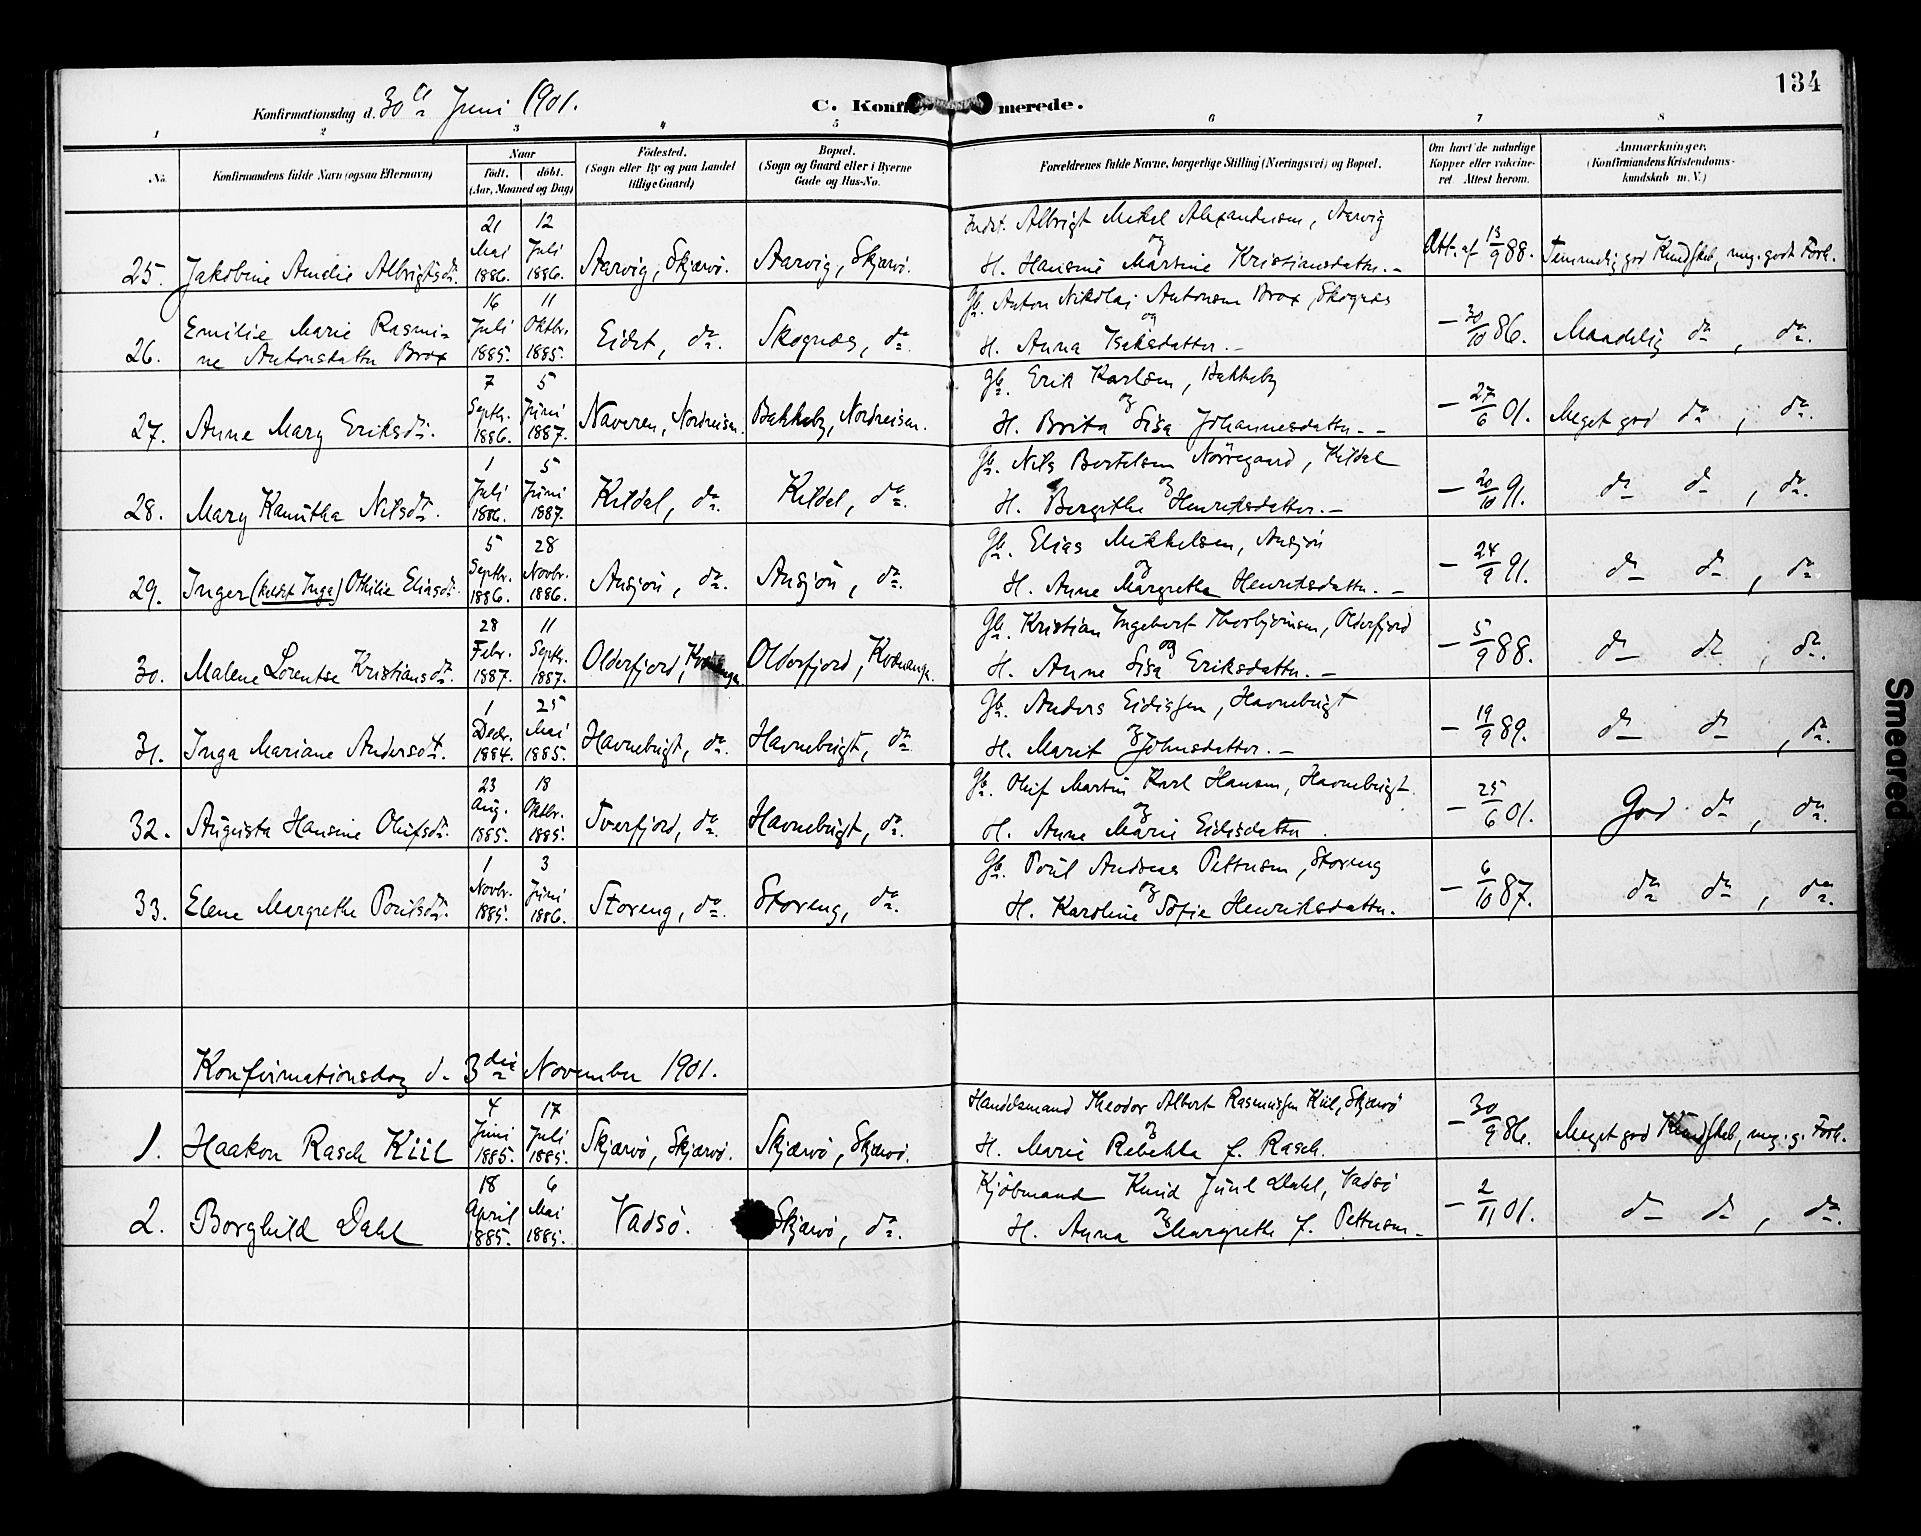 134
Konfirmationsdag d. 30te Juni 1901.
C. Konfirmerede.
1 2 3 4 5 6 7 8
No. Konfirmandens fulde Navn (ogsaa Efternavn) Naar født. døbt. (Aar, Maaned og Dag) Födested. (Sogn eller By og paa Landet tillige Gaard) Bopæl. (Sogn og Gaard eller i Byerne Gade og Hus-No. Forældrenes fulde Navne, borgerlige Stilling (Næringsvei) og Bopæl. Om havt de naturlige Kopper eller vaccineret. Attest herom. Anmærkninger, (Konfirmandens Kristendomskundskab m. V.)
25. Jakobine Amelie Albrigtsdtr. 21 Mai 1886. 12 Juli 1886. Aarvig, Skjærvö. Aarvig, Skjærvö. Indst. Albrigt Mekel Alexandersen, Aarvig og H. Hansine Martine Kristiansdatter.- Att. af 13/9 88. Temmelig god Kundskab, meg. godt Forh.
26. Emilie Marie Rasmine Antonsdatter Brox 16 Juli 1885. 11 Oktbr. 1885. Eidet, do. Skognæs, do. Gb. Anton Nikolai Antonsen Brox, Skognæs og H. Anna Isaksdatter.- - 30/10 86. Maadelig do, do.
27. Anne Mary Eriksdtr. 7 Septbr. 1886. 5 Juni 1887. Naveren, Nordreisen. Bakkeby, Nordreisen. Gb. Erik Karlsen, Bakkeby og H. Brita Lisa Johannesdatter.- - 27/6 01. Meget god do, do.
28. Mary Kanutha Nilsdtr. 1 Juli 1886. 5 Juni 1887. Kildal, do. Kildal, do. Gb. Nils Bertelsen Nörregaard, Kildal og H. Bergithe Henriksdatter.- - 20/10 91. do do, do.
29. Inger (kaldet Inga) Othilie Eliasdtr. 5 Septbr. 1886. 28 Novbr. 1886. Ansjön, do. Ansjön, do. Gb. Elias Mikkelsen, Ansjön og H. Anne Margrethe Henriksdatter.- - 24/9 91. do do, do
30. Malene Lorentse Kristiansdtr. 28 Febr. 1887. 11 Septbr. 1887. Olderfjord, Kvænanger. Olderfjord, Kvænanger. Gb. Kristian Ingebert Thorbjörnsen, Olderfjord og H. Anne Lisa Eriksdatter.- - 5/9 88. do do, do.
31. Inga Mariane Andersdtr. 1 Decbr. 1884. 25 Mai 1885. Havnebugt, do. Havnebugt, do. Gb. Anders Eidissen, Havnebugt og H. Marit Johnsdatter.- - 19/9 89. do do, do.
32. Augusta Hansine Olufsdtr. 23 Aug. 1885. 18 Oktbr. 1885. Tverfjord, do. Havnebugt, do. Gb. Oluf Martin Karl Hansen, Havnebugt. og H. Anne Marie Eidisdatter. - 25/6 01. God do, do.
33. Elene Margrethe Poulsdtr. 1 Novbr. 1885. 3 Juni 1886. Storeng, do. Storeng, do. Gb. Poul Andreas Pettersen, Storeng og H. Karoline Sofie Henriksdatter. - 6/10 87. do do, do.
Konfirmationsdag d. 3die November 1901.
1. Haakon Rasch Kiil 4 Juni 1885. 17 Juli 1885. Skjærvö, Skjærvö. Skjærvö, Skjærvö. Handelsmand Theodor Albert Rasmussen Kiil, Skjærvö og H. Marie Rebekka f. Rasch. - 30/9 86. Meget god Kundskab, meg. g. Forh.
2. Borghild Dahl 18 April 1885. 6 Mai 1885. Vadsö. Skjærvö, do. Kjöbmand Knud Juul Dahl, Vadsö og H. Anna Margrethe f. Pettersen.- - 2/11 01. do do, do.
Smeared